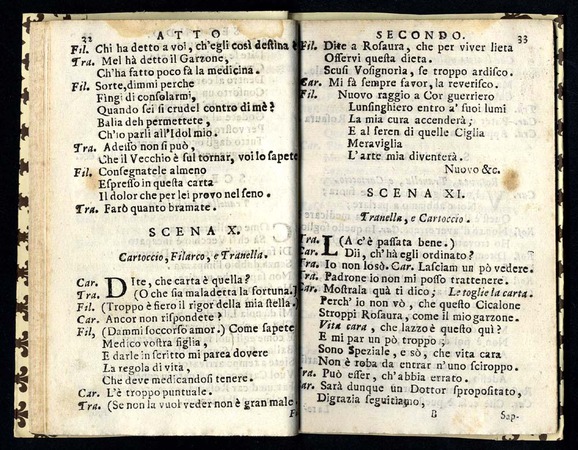 32 ATTO
Fil. Chi ha detto a voi, ch'egli così destina è
Tra. Mel hà detto il Garzone,
Ch'ha fatto poco fà la medicina.
Fil. Sorte, dimmi perche
Fingi di consolarmi,
Quando sei sì crudel contro di mè?
Balia deh permettete,
Ch'io parli all'Idol mio.
Tra. Adesso non si può,
Che il Vecchio è sul tornar, voi lo sapete
Fil. Consegnatele almeno
Espresso in questa carta
Il dolor che per lei provo nel seno.
Tra. Farò quanto bramate.
SCENA X.
Cartoccio, Filarco, e Tranella.
Car. DIte, che carta è quella?
Tra. (O che sia maladetta la fortuna.)
Fil. (Troppo è fiero il rigor della mia stella.)
Car. Ancor non rispondete?
Fil, (Dammi soccorso amor.) Come sapete
Medico vostra figlia,
E darle in scritto mi parea dovere
La regola di vita,
Che deve medicandosi tenere.
Car. L'è troppo puntuale.
Tra. (Se non la vuol veder non è gran male
SECONDO. 33
Fil. Dite a Rosaura, che per viver lieta
Osservi questa dieta.
Scusi Vosignoria, se troppo ardisco.
Car. Mi fà sempre favor, la reverisco.
Fil. Nuovo raggio a Cor guerriero
Lunsinghiero entro a' suoi lumi
La mia cura accenderà;
E al seren di quelle Ciglia
Meraviglia
L'arte mia diventerà.
Nuovo &c.
SCENA XI.
Tranella, e Cartoccio.
Tra. (A c'è passata bene.)
Car. LDii, ch'hà egli ordinato?
Tra. Io non losò. Car. Lasciam un pò vedere.
Tra. Padrone io non mi posso trattenere.
Car. Mostrala quà ti dico; Le toglie la carta.
Perch' io non vò, che questo Cicalone
Stroppi Rosaura, come il mio garzone.
Vita cara, che lazzo è questo quì?
E mi par un pò troppo;
Sono Speziale, e sò, che vita cara
Non è roba da entrar n'uno sciroppo.
Tra. Può esser, ch'abbia errato.
Car. Sarà dunque un Dottor spropositato,
Digrazia seguitiamo,
B Sap-